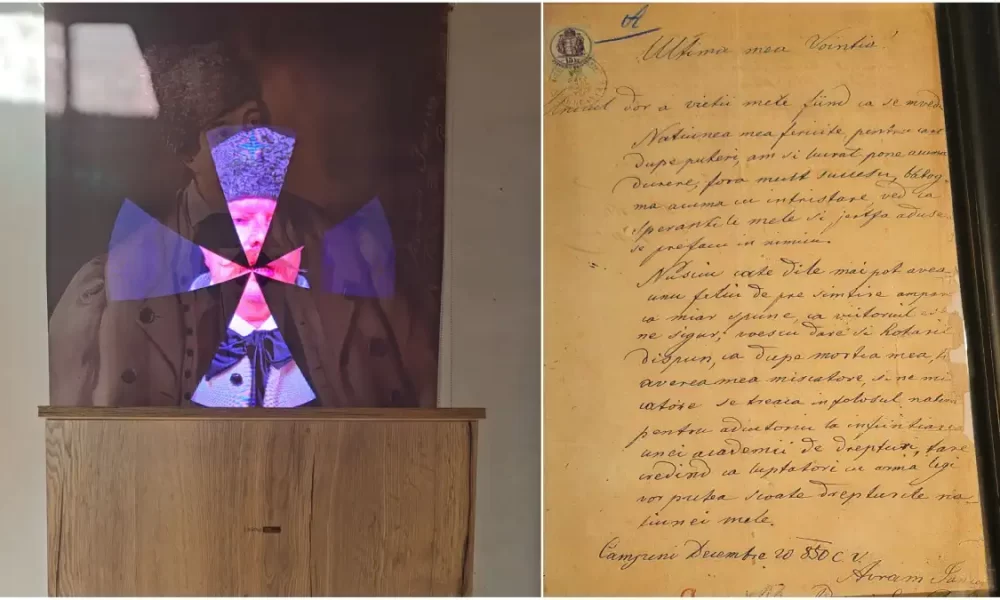 Ultima mea Vointia!
Unicul dor a vietii mele fiind ca se mi ved
Natiunea mea fericita, pentru care
dupe puteri, am si lucrat pone acuma
durere, fora mult succesu, batog
ma acuma cu intristare, ved ca
sperantiele mele si jertfa aduse
se prefacu in nimicu.
Nusciu cate dile mai pot avea
unu feliu de pre simtire
ca miar spune, ca viitoriul
ne sigur, voescu dare si hotaritu
dispun, ca dupe mortea mea,
averea mea miscatore, si ne mi
catore se treaca in folosul natiu
pentru adiutoriu la infiintiarea
unei academii de drepturi, tare
credind ca luptatori cu arma legi
vor putea scoate drepturile na
tiunei mele.
Campeni Decembre 20 850 C. V.
Avram